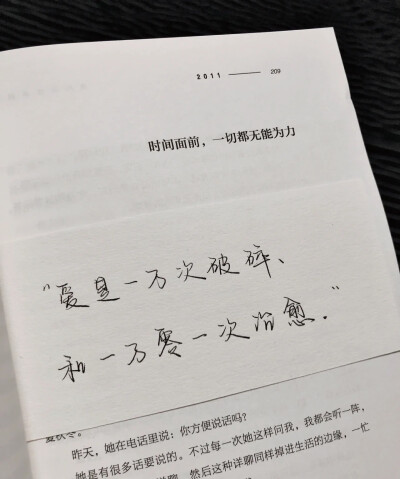 2011 —— 209
时间面前,一切都无能为力
"爱是一万次破碎、
和一万零一次治愈."
夏秋冬。
昨天,她在电话里说:你方便说话吗?
她是有很多话要说的。不过每一次她这样问我,我都会听一阵,
然后这种详聊同样掉进生活的边缘,一忙